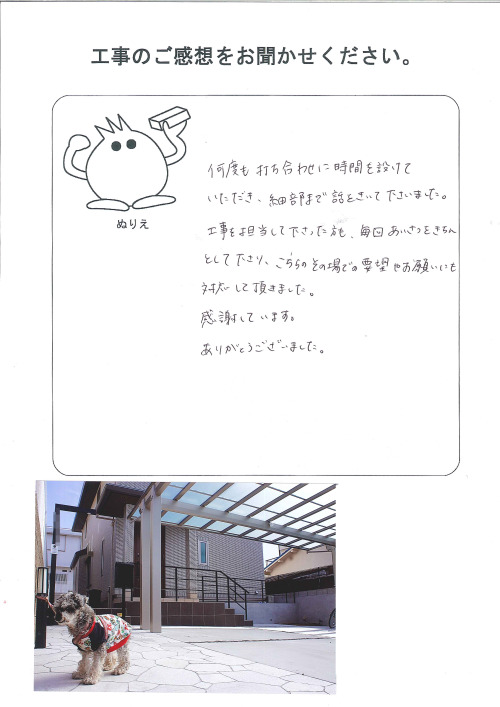 工事のご感想をお聞かせください。
ぬりえ
何度も打ち合わせに時間を設けて
いただき、細部まで話をきいて下さいました。
工事を担当して下さった方も、毎回あいさつをきちん
として下さり、こちらのその場での要望やお願いにも
対応して頂きました。
感謝しています。
ありがとうございました。